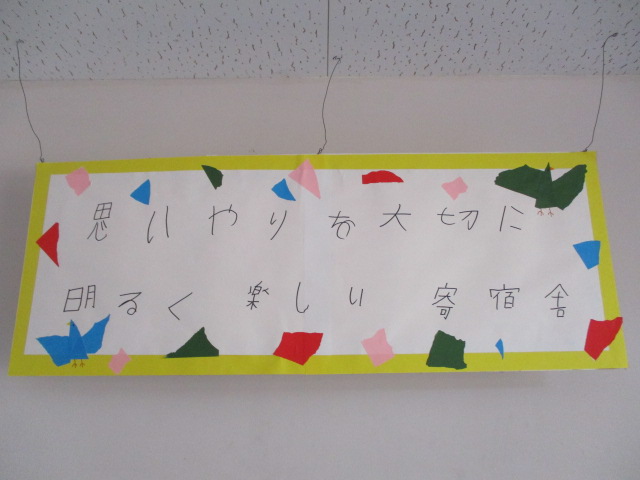 思いやりを大切に
明るく楽しい寄宿舎